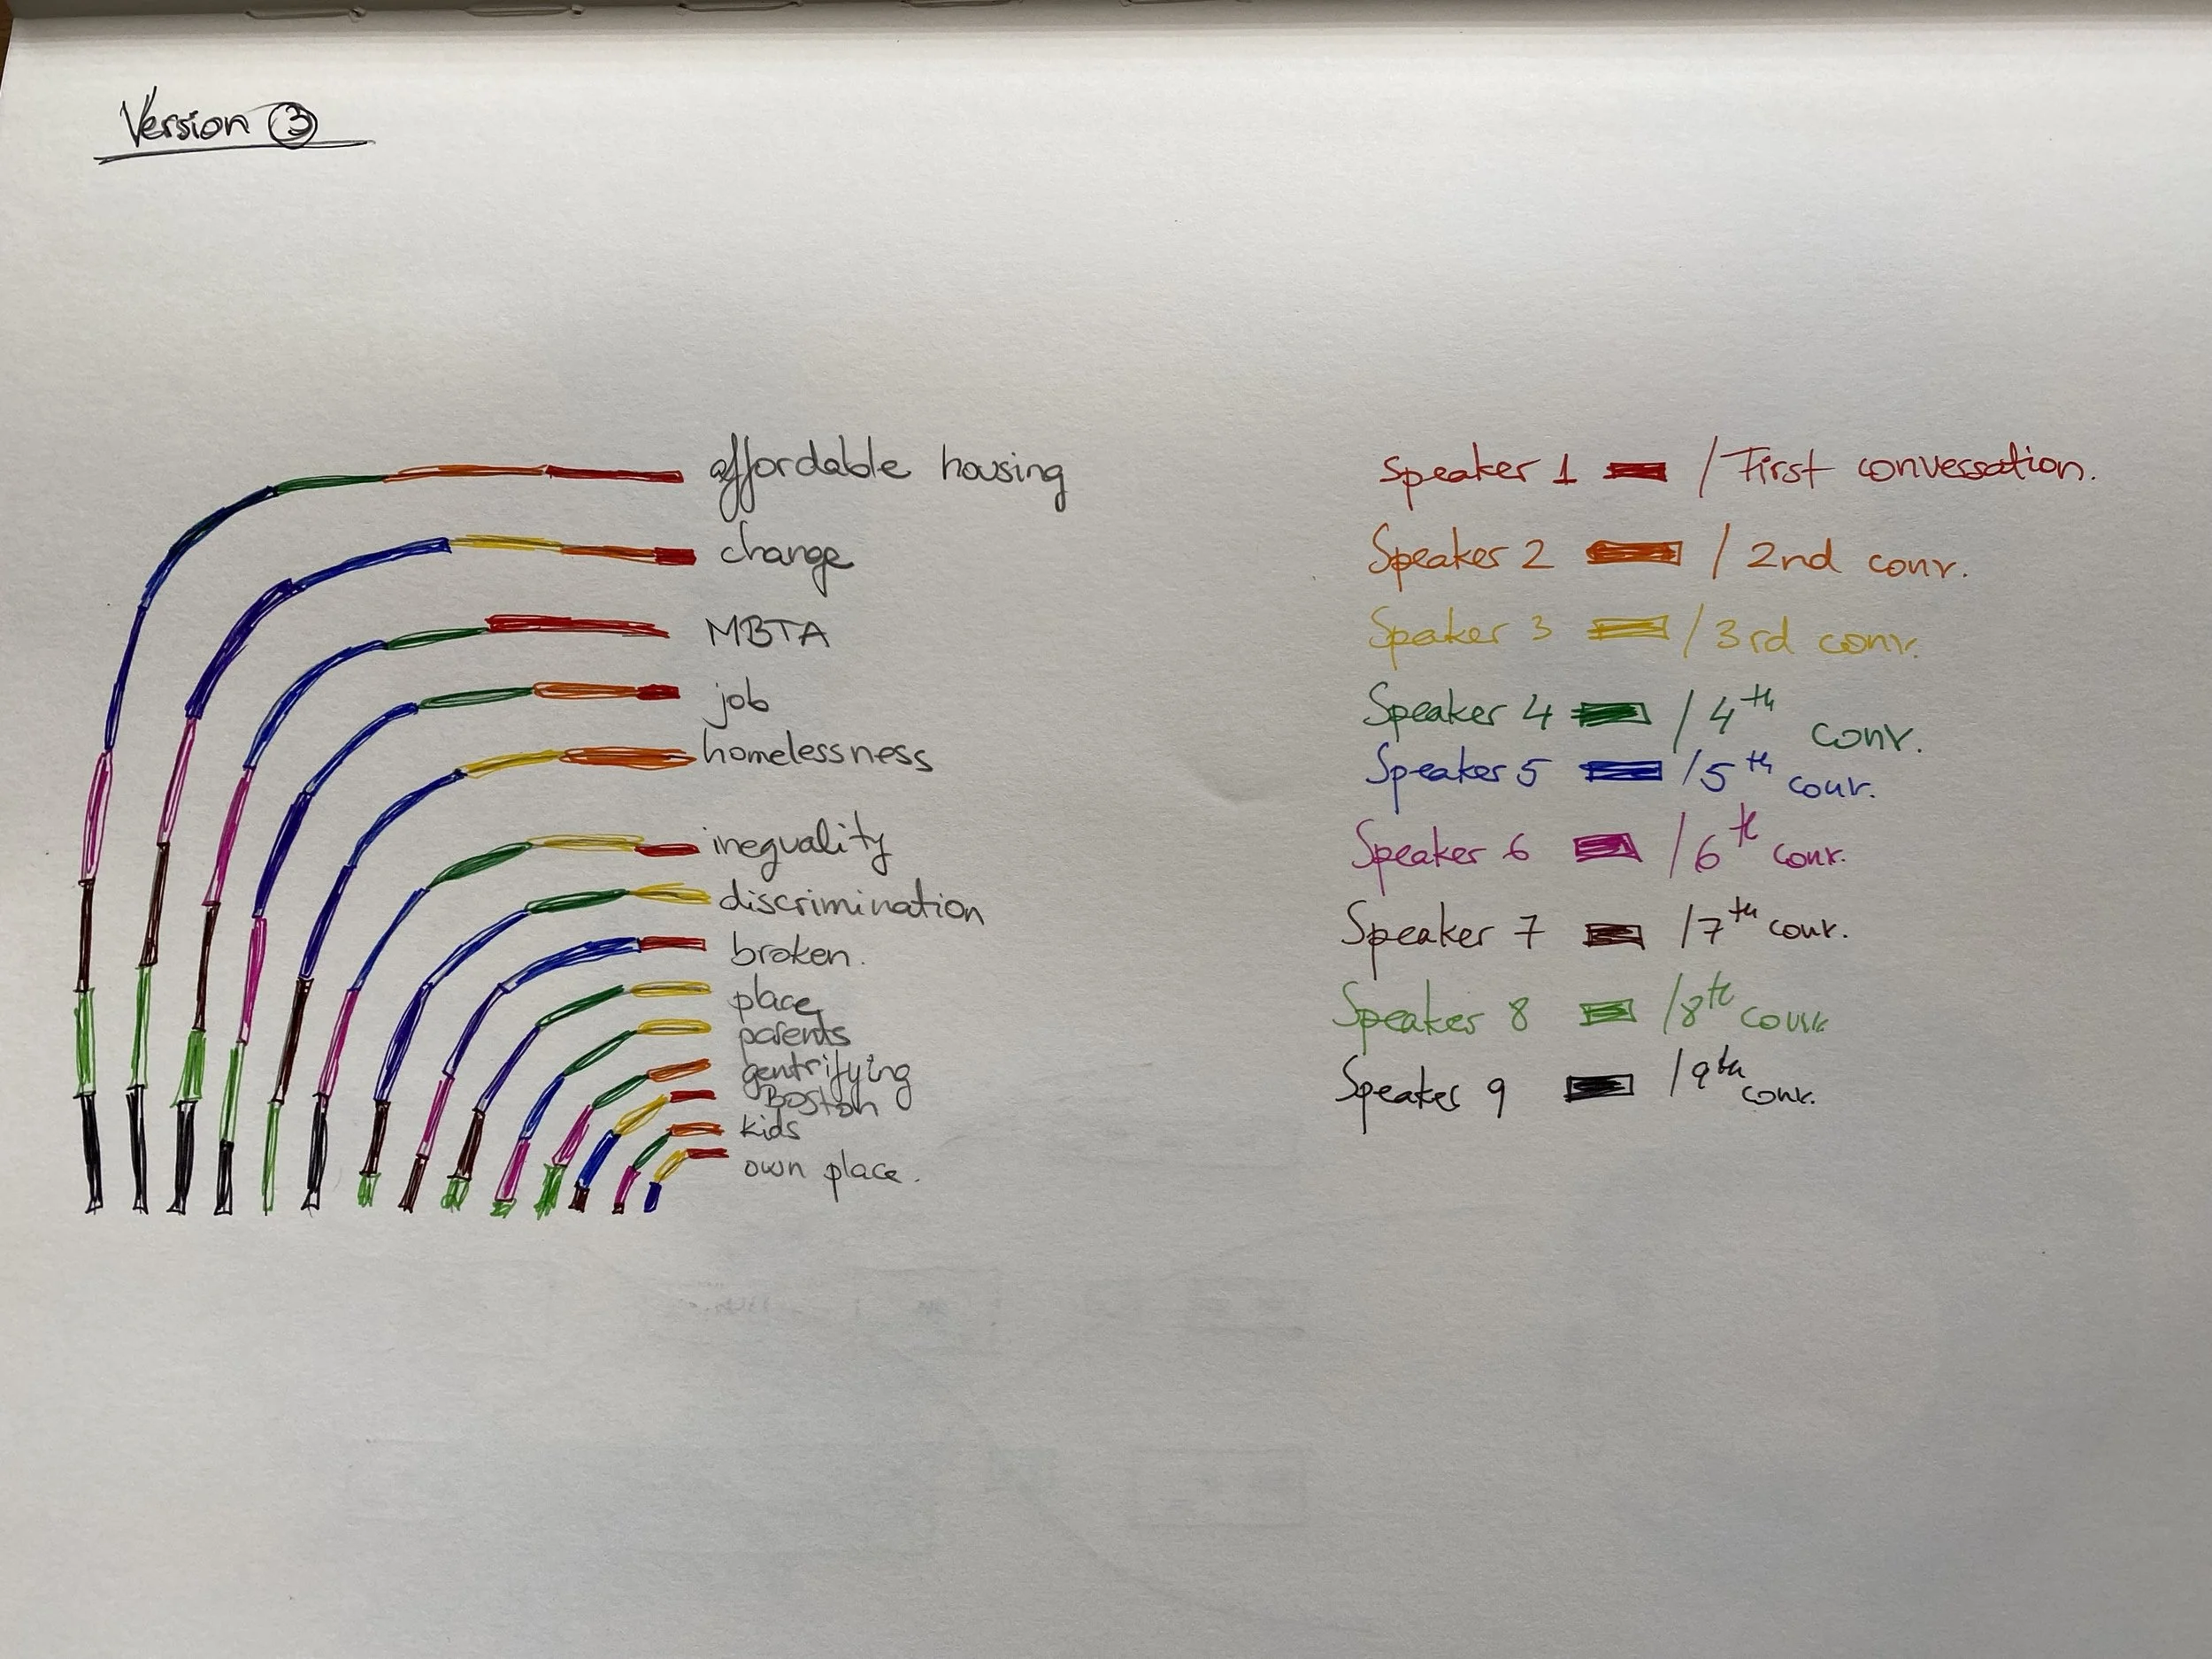 Version 3
affordable housing
change
MBTA
job
homelessness
inequality
discrimination
broken.
place
parents
gentrifying
Boston
kids
own place.
Speaker 1 / First conversation.
Speaker 2 / 2nd conv.
Speaker 3 / 3rd conv.
Speaker 4 / 4th conv.
Speaker 5 / 5th conv.
Speaker 6 / 6th conv.
Speaker 7 / 7th conv.
Speaker 8 / 8th conv.
Speaker 9 / 9th conv.